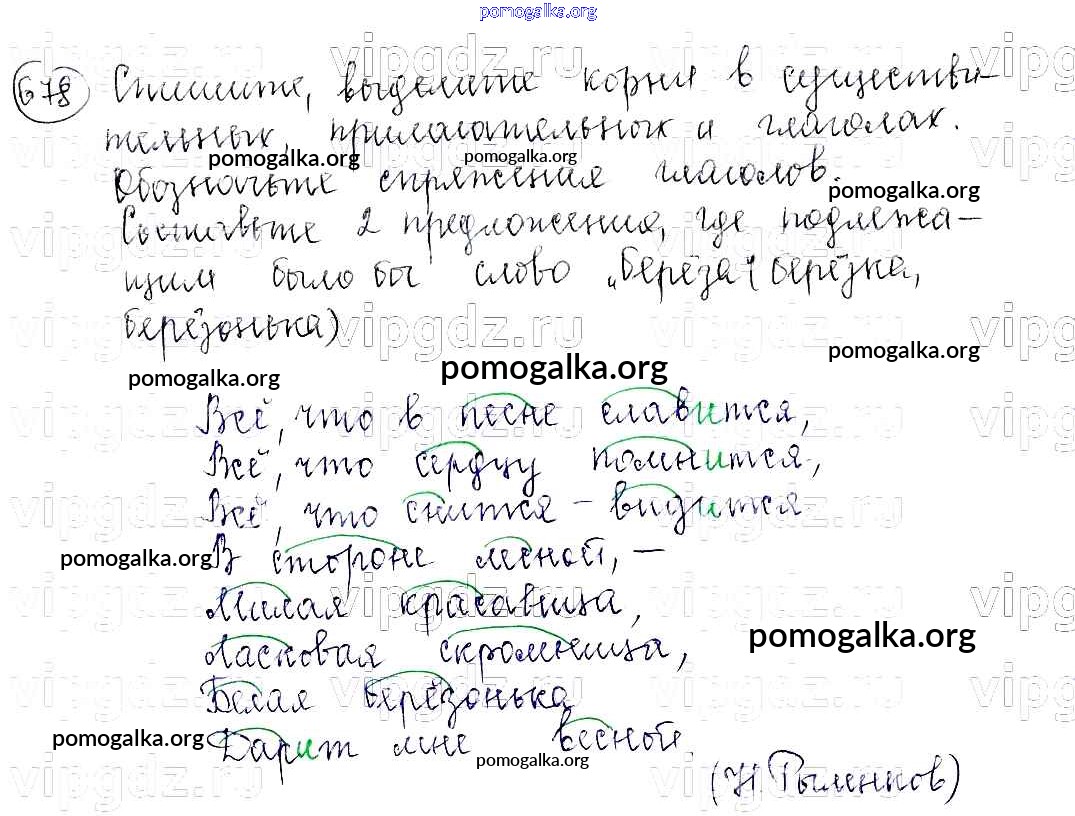 pomogalka.org
678 Спишите, выделите корни в существи-
тельных, прилагательных и глаголах.
pomogalka.org pomogalka.org
Обозначьте спряжения глаголов.
pomogalka.org
Составьте 2 предложения, где подлежа-
щим было бы слово „берёза" (берёзка,
берёзонька)
pomogalka.org
pomogalka.org pomogalka.org
Всё, что в песне славится,
Всё, что сердцу помнится,
Всё, что снится – видится
pomogalka.org
В стороне лесной, –
Милая красавица,
pomogalka.org
Ласковая скромница,
Белая берёзонька
pomogalka.org
Дарит мне весной.
pomogalka.org
(Н. Рыленков)
vipgdz.ru